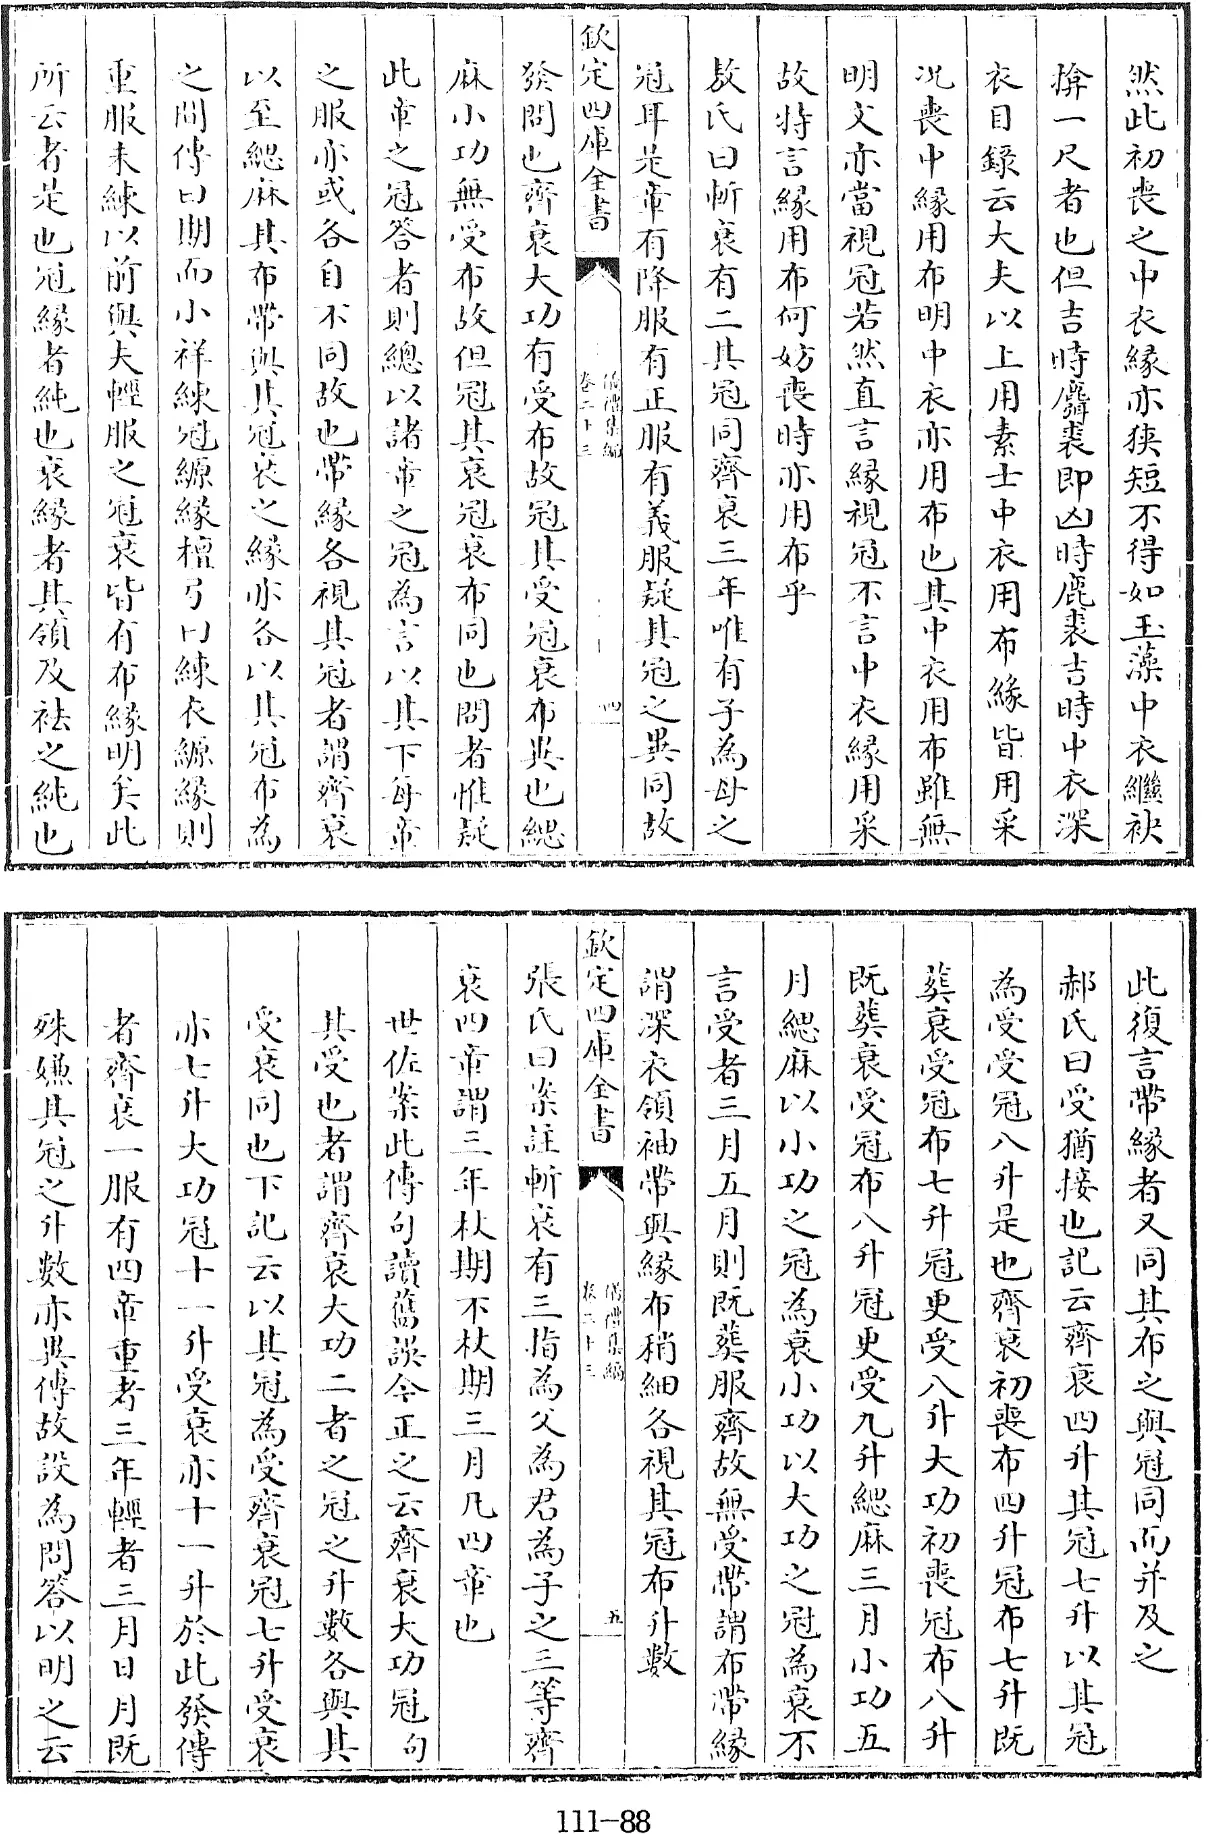 然此初喪之中衣緣亦狹短不得如玉藻中衣繼袂
揜一尺者也但吉時麛裘即凶時鹿裘吉時中衣深
衣目錄云大夫以上用素士中衣用布緣皆用采
况喪中緣用布明中衣亦用布也其中衣用布雖無
明文亦當視冠若然直言緣視冠不言中衣緣用采
故特言緣用布何妨喪時亦用布乎
敖氏曰斬衰有二其冠同齊衰三年唯有子為母之
冠耳是章有降服有正服有義服疑其冠之異同故
欽定四庫全書 儀禮集編 卷二十三 四
發問也齊衰大功有受布故冠其受冠衰布異也緦
麻小功無受布故但冠其衰冠衰布同也問者惟疑
此章之冠答者則總以諸章之冠為言以其下每章
之服亦或各自不同故也帶緣各視其冠者謂齊衰
以至緦麻其布帶與其冠衰之緣亦各以其冠布為
之間傳曰期而小祥練冠縓緣檀弓曰練衣縓緣則
重服未練以前與夫輕服之冠衰皆有布緣明矣此
所云者是也冠緣者純也衰緣者其領及袪之純也
此復言帶緣者又同其布之與冠同而并及之
郝氏曰受猶接也記云齊衰四升其冠七升以其冠
為受受冠八升是也齊衰初喪布四升冠布七升既
葬衰受冠布七升冠更受八升大功初喪冠布八升
既葬衰受冠布八升冠更受九升緦麻三月小功五
月緦麻以小功之冠為衰小功以大功之冠為衰不
言受者三月五月則既葬服齊故無受帶謂布帶緣
謂深衣領袖帶與緣布稍細各視其冠布升數
欽定四庫全書 儀禮集編 卷二十三 五
張氏曰案註斬衰有三指為父為君為子之三等齊
衰四章謂三年杖期不杖期三月凡四章也
世佐案此傳句讀舊誤今正之云齊衰大功冠句
其受也者謂齊衰大功二者之冠之升數各與其
受衰同也下記云以其冠為受齊衰冠七升受衰
亦七升大功冠十一升受衰亦十一升於此發傳
者齊衰一服有四章重者三年輕者三月日月既
殊嫌其冠之升數亦異傳故設為問答以明之云
111-88